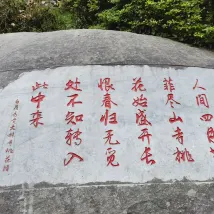 人间四月
菲尽山寺桃
花始盛开长
恨春归无觅
处不知转入
此中来